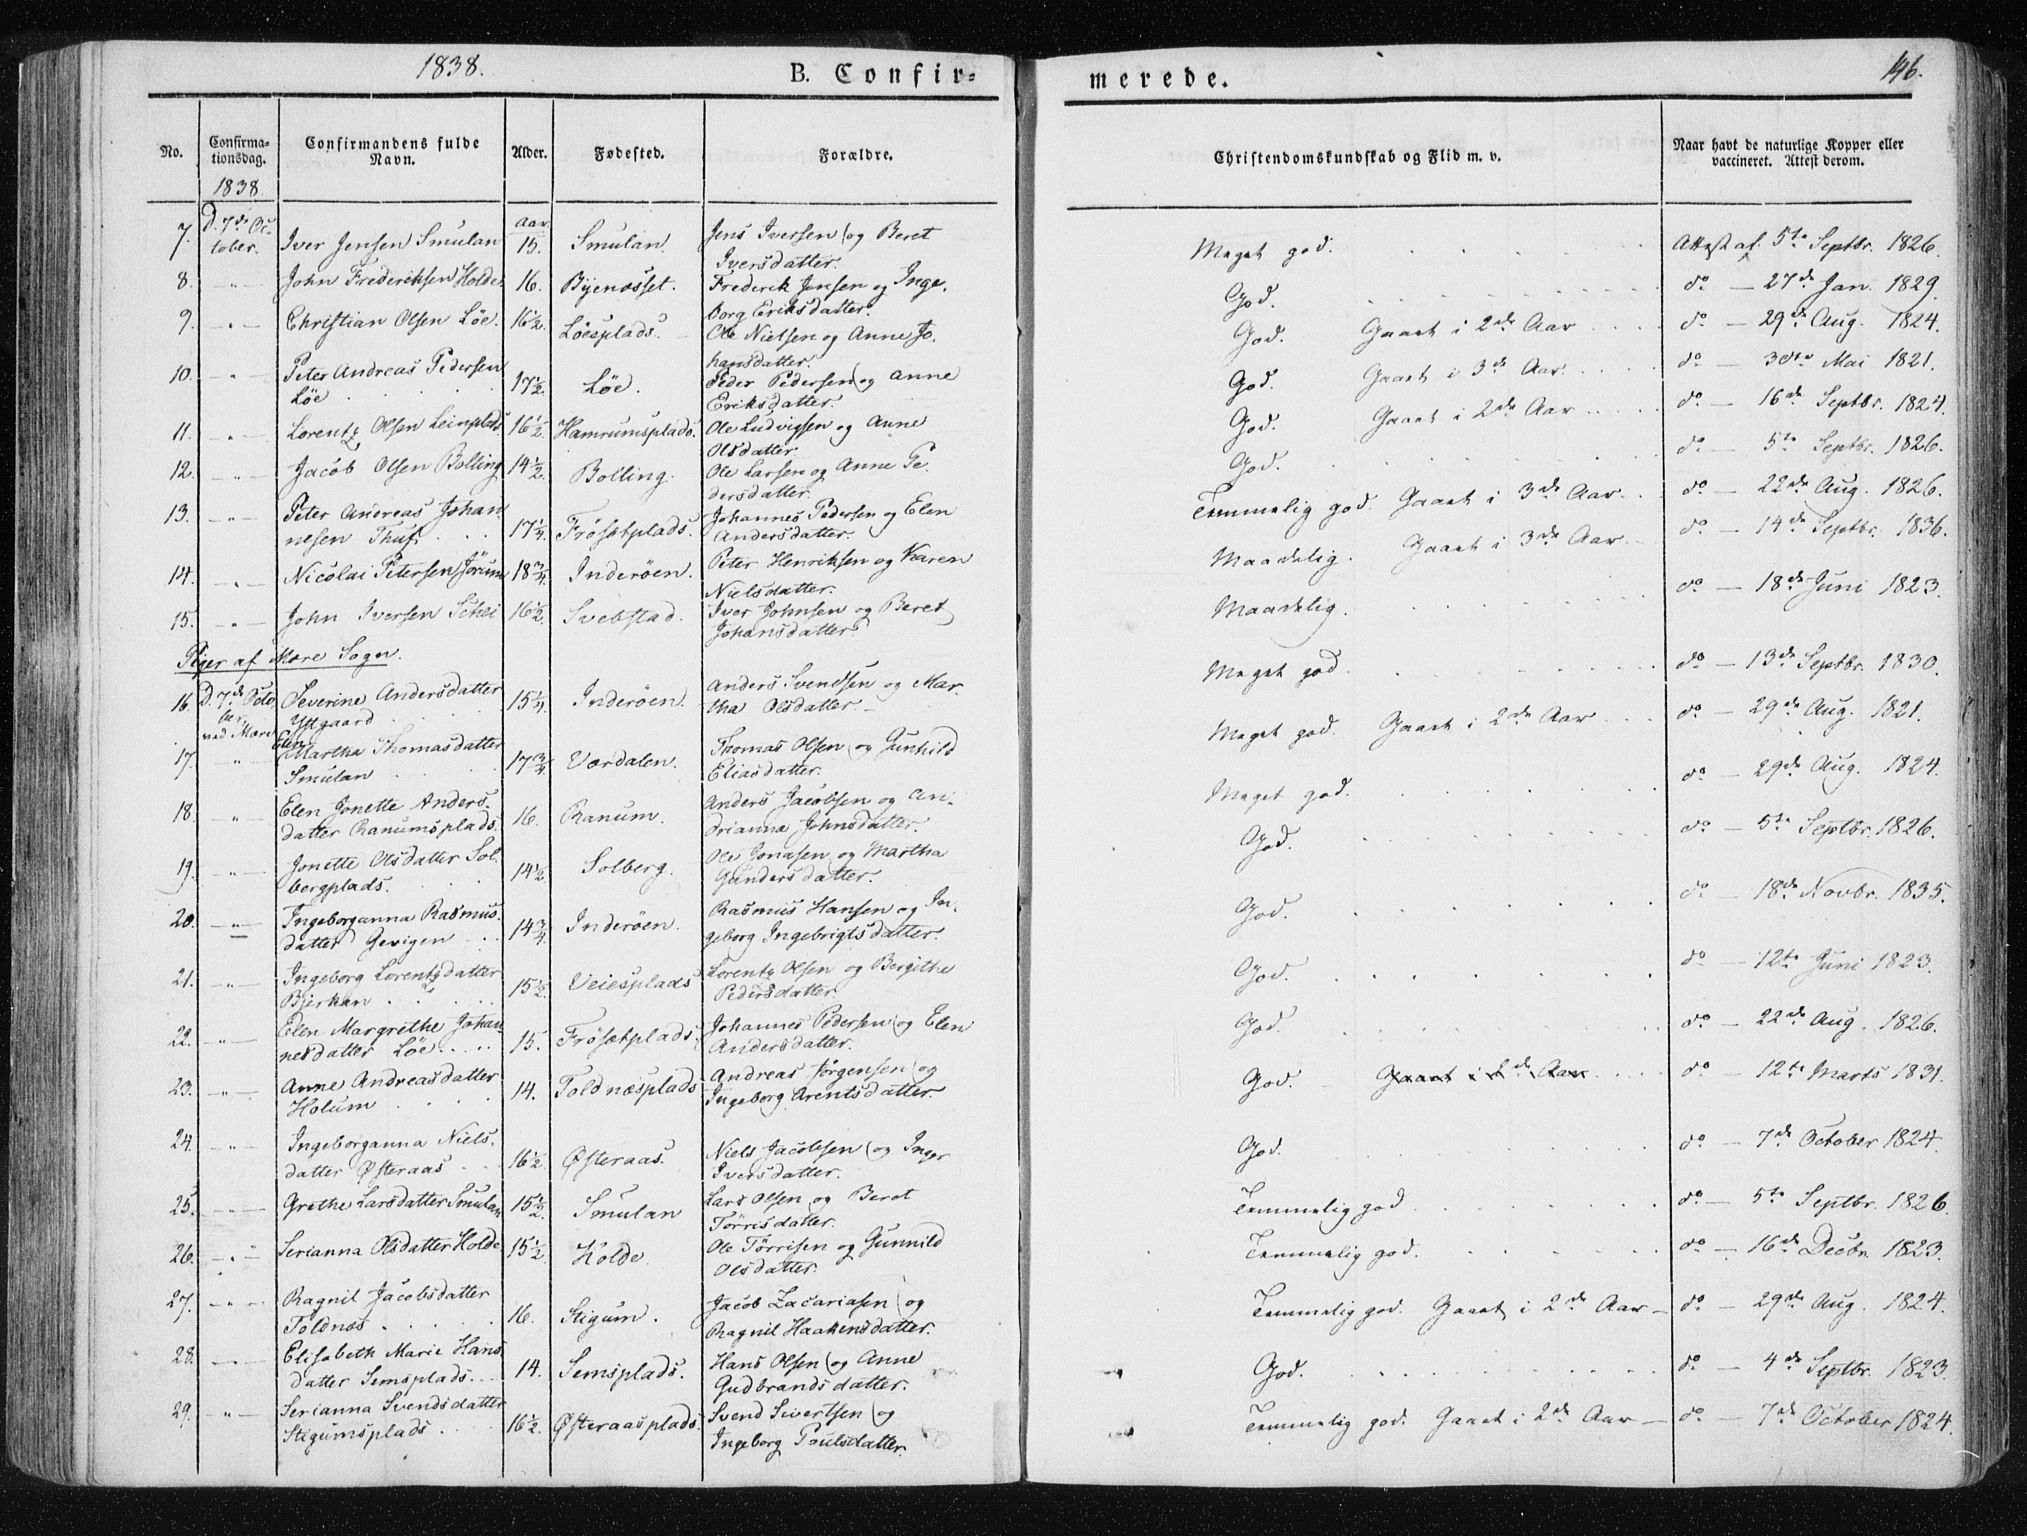 1838.
B. Confir=
merede.
146.
No.
Confirma-
tionsdag.
Confirmandens fulde
Navn.
Alder.
Fødested.
Forældre.
Christendomskundskab og Flid m. v.
Naar havt de naturlige Kopper eller
vaccineret. Attest derom.
1838.
Aar
7. D. 7de Oc- Iver Jensen Smulan 15. Smulan. Jens Iversen og Beret Meget god. Attest af 5te Septbr. 1826.
tober. Iversdatter.
8. " John Frederiksen Holde 16. Byenæsset. Frederik Jensen og Inge. God. do — 27de Jan. 1829.
borg Eriksdatter.
9. " Christian Olsen Löe. 16½. Löesplads. Ole Nielsen og Anne Jo. God. Gaaet i 2de Aar do — 29de Aug. 1824.
hansdatter.
10. " Peter Andreas Pedersen 17½. Löe. Peder Pedersen og Anne God. Gaaet i 3de Aar. do — 30te Mai 1821.
Löe Eriksdatter.
11. " Lorentz Olsen Leinplads 16½. Hamrumsplads. Ole Ludvigsen og Anne God. Gaaet i 2de Aar do — 16de Septbr. 1824.
Olsdatter.
12. " Jacob Olsen Bolling 14½. Bolling. Ole Larsen og Anne Pe. God. do — 5te Septbr. 1826.
dersdatter.
13. " Peter Andreas Johan 17¼. Frösetplads. Johannes Pedersen og Elen Temmelig god. Gaaet i 3de Aar. do — 22de Aug. 1826.
nesen Thuf Andersdatter.
14. " Nicolai Petersen Jörum 18¾. Inderöen. Peter Henriksen og Karen Maadelig. Gaaet i 3de Aar do — 14de Septbr. 1836.
Nielsdatter.
15. " John Iversen Schei 16½. Svebstad. Iver Johnsen og Beret Maadelig. do — 18de Juni 1823.
Johansdatter.
Piger af Mære Sogn.
16. D. 7de Octo Severine Andersdatter 15¼. Inderöen. Anders Svendsen og Mar- Meget god. do — 13de Septbr. 1830.
ber Ystgaard tha Olsdatter.
ved Mære
Elen
17. " Martha Thomasdatter 17¾. Værdalen. Thomas Olsen og Gunhild Meget god. Gaaet i 2de Aar do — 29de Aug. 1821.
Smulan Eliasdatter.
18. " Elen Jonette Anders- 16. Ranum. Anders Jacobsen og An- Meget god. do — 29de Aug. 1824.
datter Ranumsplads. drianna Johnsdatter.
19. " Jonette Olsdatter Sol. 14½ Solberg. Ole Jonasen og Martha God. do — 5te Septbr. 1826.
bergplads. Gundersdatter.
20. " Ingeborganna Rasmus. 14¾. Inderöen. Rasmus Hansen og In- God. do — 18de Novbr. 1835.
datter Gevigen geborg Ingebrigtsdatter.
21. " Ingeborg Lorentzdatter 15½. Veiesplads Lorentz Olsen og Bergithe God. do — 12te Juni 1823.
Bjerkan Pedersdatter.
22. " Elen Margrethe Johan 15. Frösetplads. Johannes Pedersen og Elen God. do — 22de Aug. 1826.
nesdatter Löe Andersdatter.
23. " Anne Andreasdatter 14. Toldnæsplads Andreas Jörgensen og God. Gaaet i 2de Aar do — 12te Marts 1831.
Holum Ingeborg Arentsdatter.
24. " Ingeborganna Niels. 16½. Østeraas. Niels Jacobsen og Inger God. do — 7de October 1824.
datter Østeraas Iversdatter.
25. " Grethe Larsdatter Smulan 15½. Smulan Lars Olsen og Beret Temmelig god. do — 5te Septbr. 1826.
Törrisdatter.
26. " Serianna Olsdatter Holde 15½. Holde. Ole Törrisen og Gunnild Temmelig god. do — 16de Decbr. 1823.
Olsdatter.
27. " Ragnil Jacobsdatter 16. Stigum. Jacob Zacariasen og Temmelig god. Gaaet i 2de Aar — do — 29de Aug. 1824.
Toldnæs Ragnil Haakensdatter.
28. " Elisabeth Marie Hans 14. Semsplads. Hans Olsen og Anne God. do — 4de Septbr. 1823.
datter Semsplads. Gudbrandsdatter.
29. " Serianna Svendsdatter 16½. Østeraasplads. Svend Sivertsen og Temmelig god. Gaaet i 2de Aar — do — 7de October 1824.
Stigumsplads Ingeborg Poulsdatter.